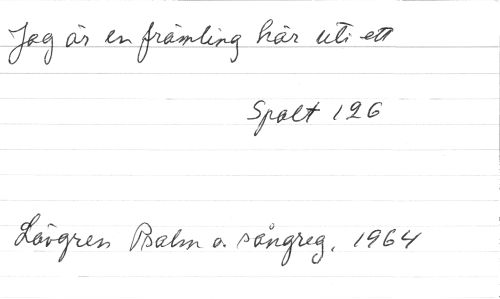 Jag är en främling här uti ett
Spalt 126
Lövgren Psalm o. sångreg. 1964